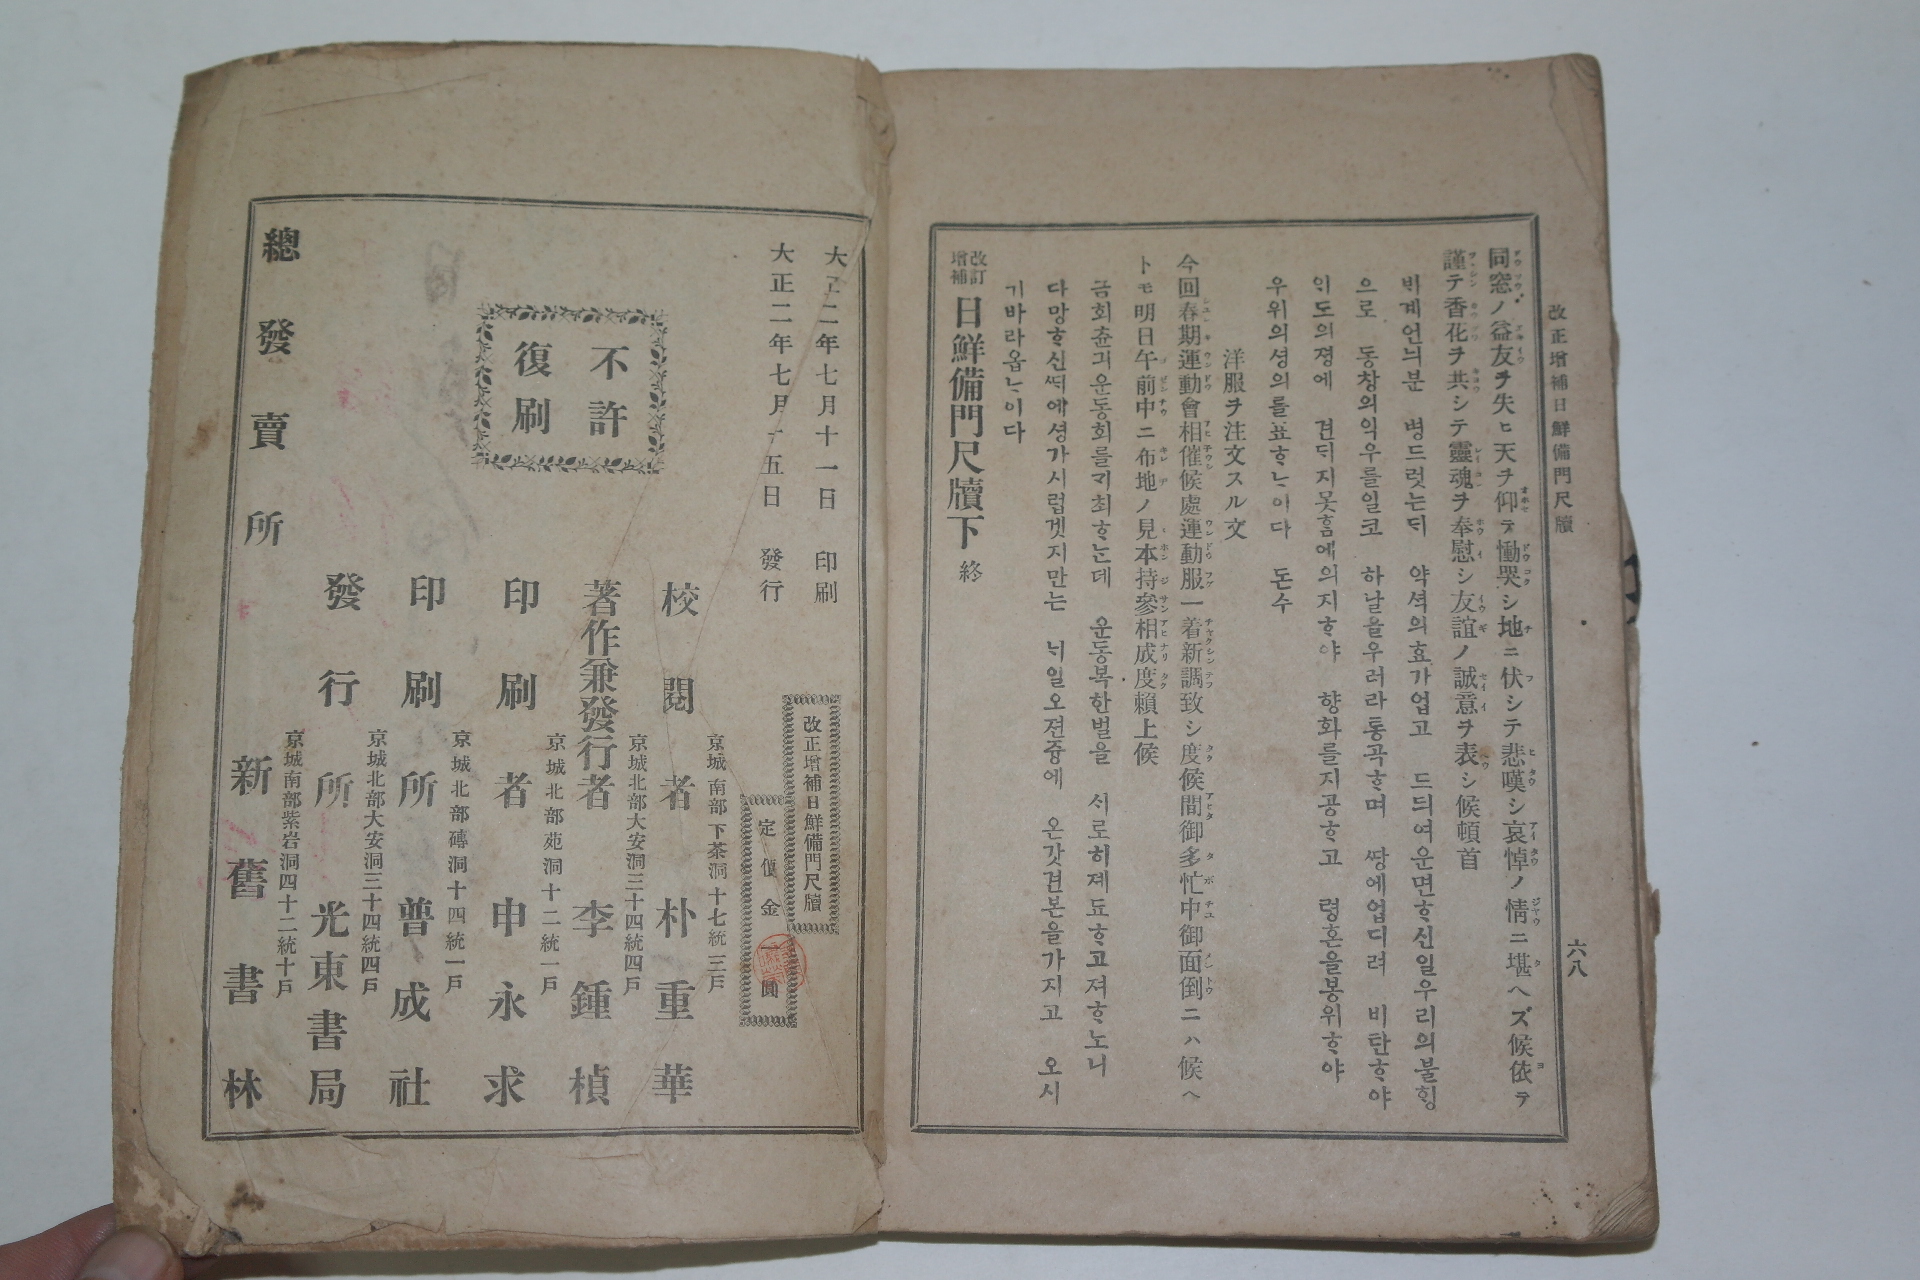 改正增補日鮮備門尺牘
六八
同窓ノ益友ヲ失ヒ天ヲ仰テ慟哭シ地ニ伏シテ悲嘆シ哀悼ノ情ニ堪ヘズ候依テ
謹テ香花ヲ共シテ靈魂ヲ奉慰シ友誼ノ誠意ヲ表シ候頓首
으로 동창의익우를일코 하날을우러라통곡ᄒᆞ며 ᄯᅡᆼ에업ᄃᆡ려 비탄ᄒᆞ야
우위의셩의를표ᄒᆞᄂᆞ이다 돈수
洋服ヲ注文スル文
今回春期運動會相催候處運動服一着新調致シ度候間御多忙中御面倒ニハ候ヘ
トモ明日午前中ニ布地ノ見本持參相成度賴上候
금회츈긔운동회를ᄀᆡ최ᄒᆞ는데 운동복한벌을 서로히졔됴ᄒᆞ고져ᄒᆞ노니
다망ᄒᆞ신ᄯᅥ에셩가시럽겟지만는 ᄂᆡ일오젼즁에 온갓견본을가지고 오시
기바라옵ᄂᆞ이다
改訂增補 日鮮備門尺牘下 終
大正二年七月十一日 印刷
大正二年七月十五日 發行
改正增補日鮮備門尺牘
定價金一圓
不許
復刷
京城南部下茶洞十七統三戶
校閱者 朴重華
京城北部大安洞三十四統四戶
著作兼發行者 李鍾楨
京城北部苑洞十二統一戶
印刷者 申永求
京城北部磚洞十四統一戶
印刷所 普成社
京城北部大安洞三十四統四戶
發行所 光東書局
京城南部紫岩洞四十二統十戶
總發賣所 新舊書林